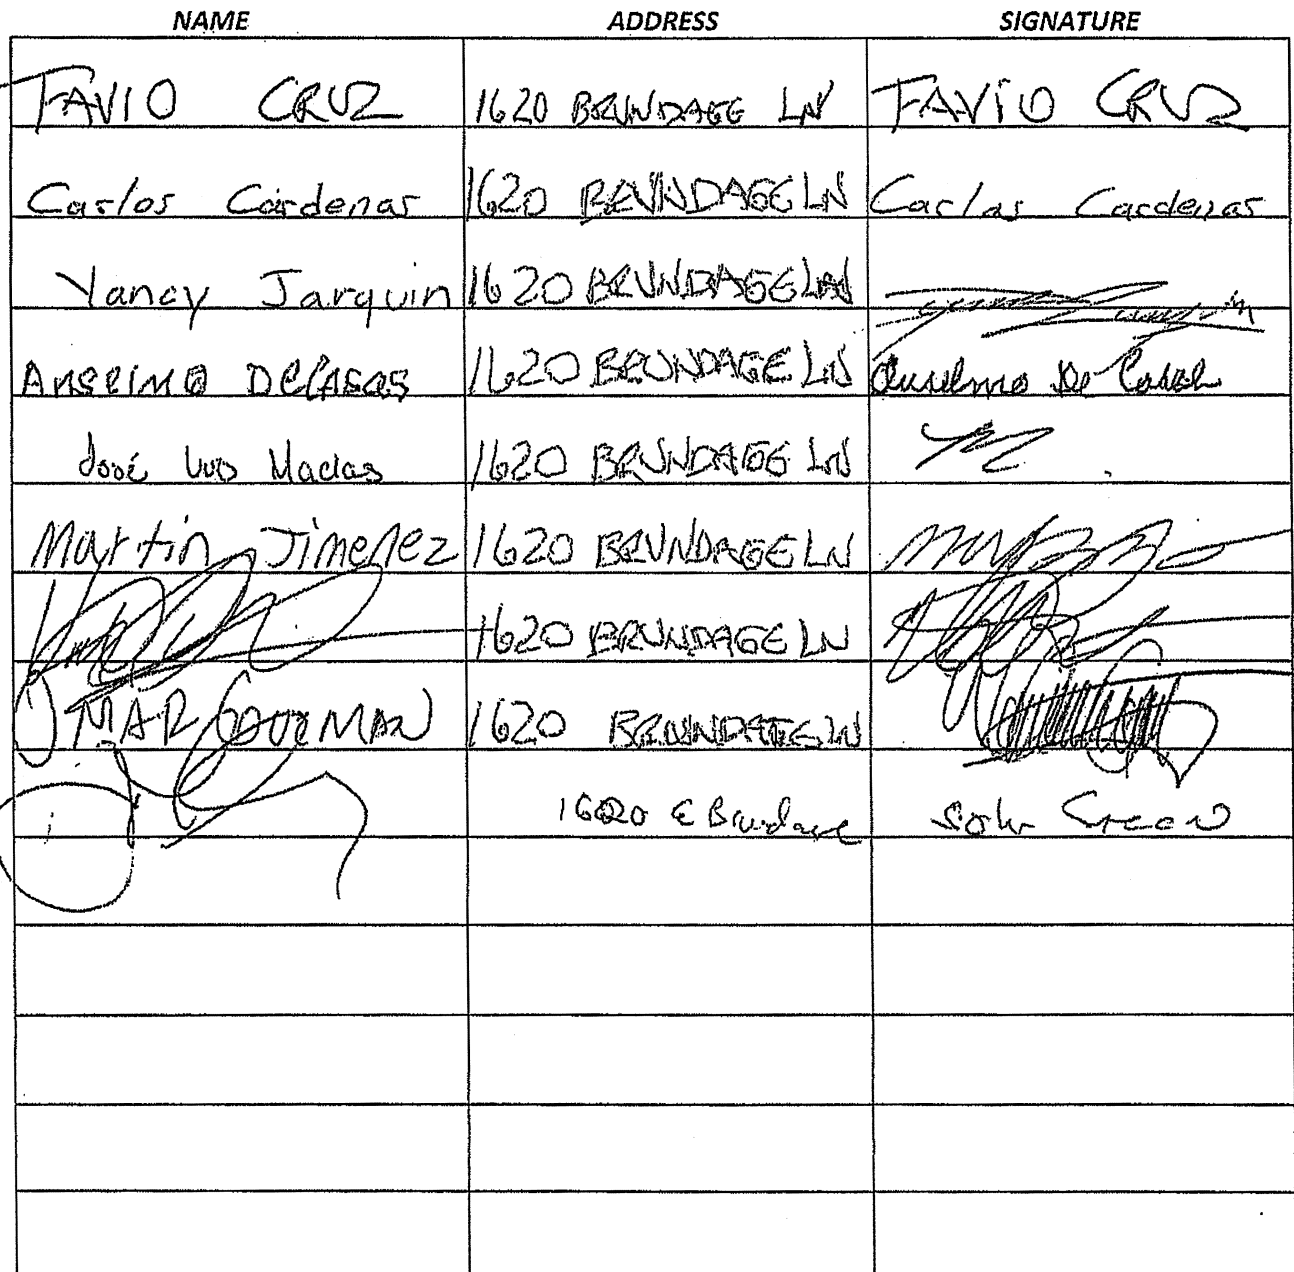 NAME ADDRESS SIGNATURE
FAVIO CRUZ 1620 BRUNDAGE LN FAViO CRUZ
Carlos Cárdenas 1620 BRUNDAGE LN Carlos Cardenas
Yancy Jarquin 1620 BRUNDAGE LN
Anselmo DeCasas 1620 BRUNDAGE LN Anselmo De Casas
José Luis Macias 1620 BRUNDAGE LN
Martin Jimenez 1620 BRUNDAGE LN
1620 BRUNDAGE LN
OMAR GUZMAN 1620 BRUNDAGE LN
1620 E Brundage Green